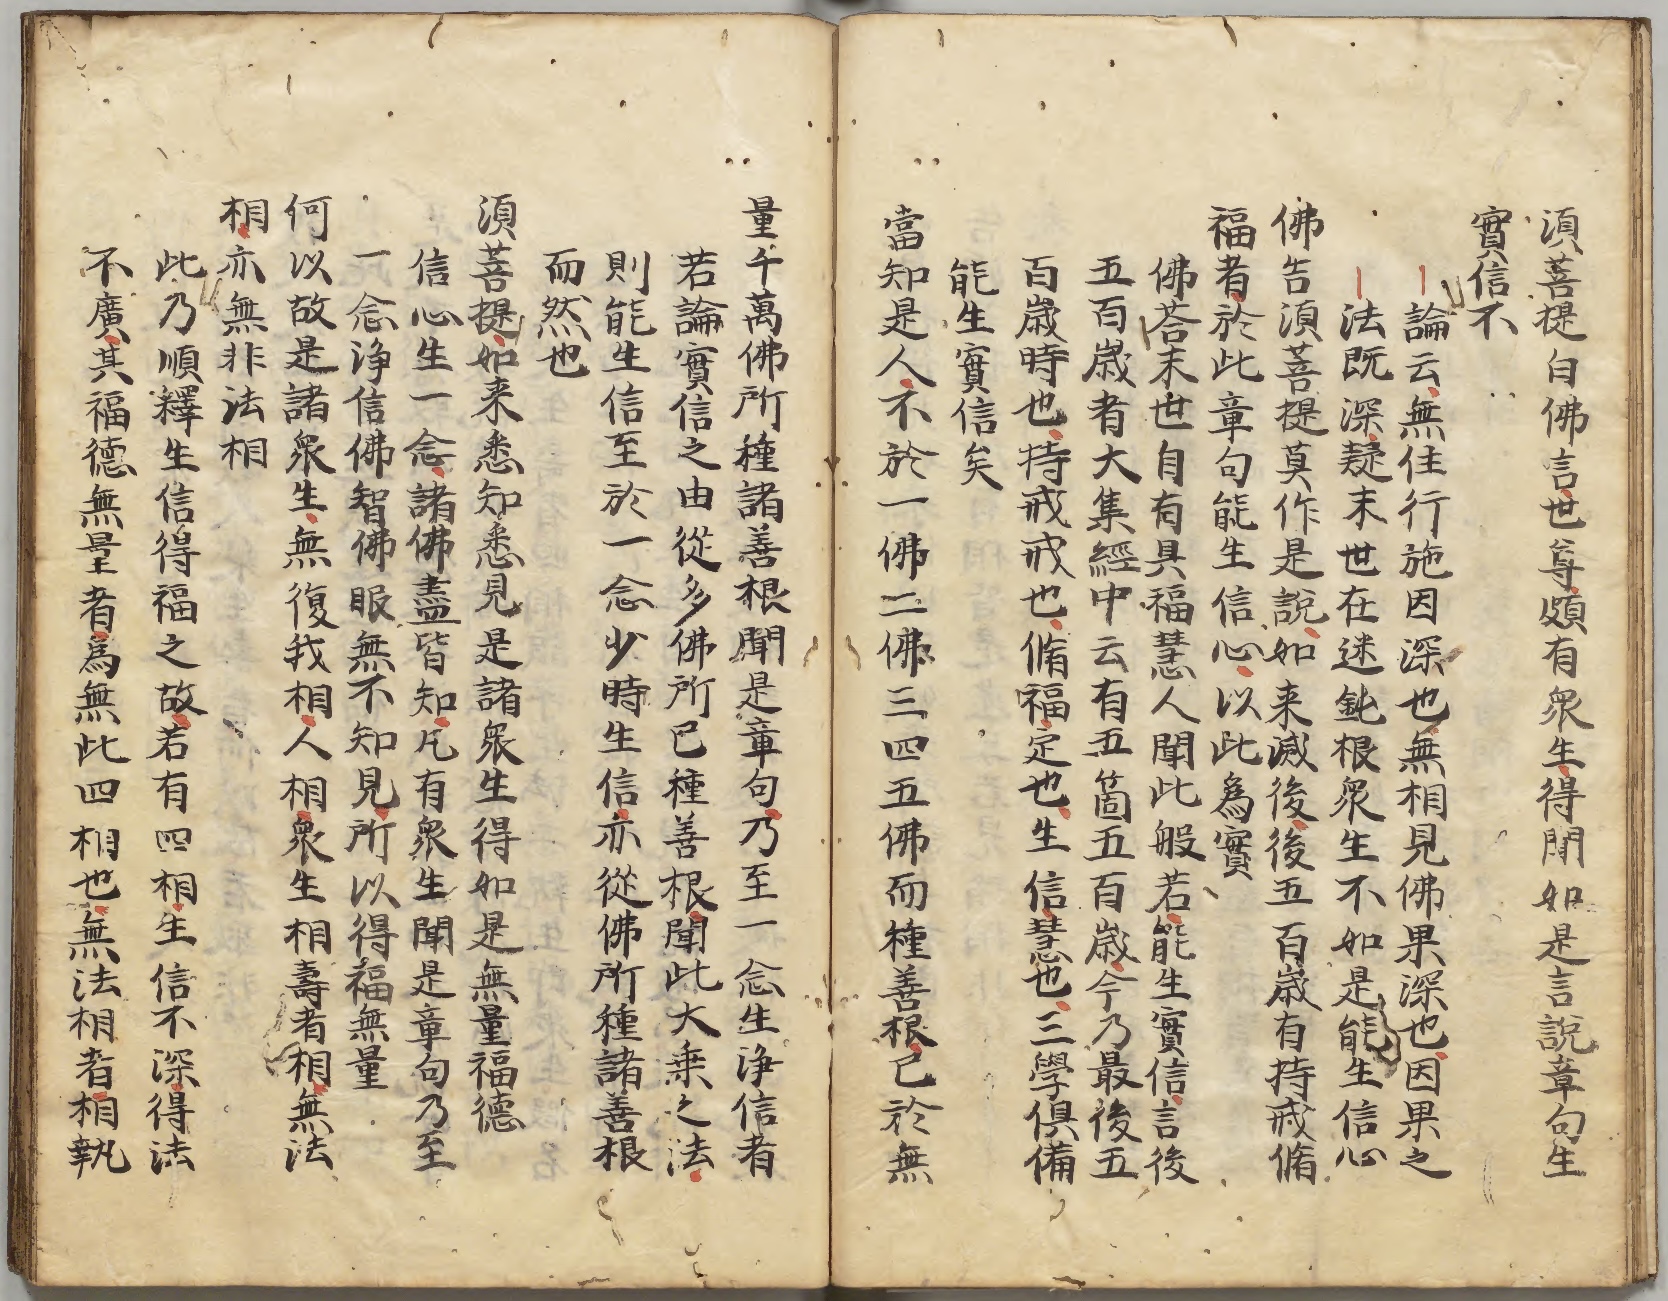 須菩提白佛言世尊頗有衆生得聞如是言說章句生
實信不
論云無住行施因深也無相見佛果深也因果之
法既深疑末世在迷鈍根衆生不如是能生信心
佛告須菩提莫作是說如来滅後後五百歲有持戒脩
福者於此章句能生信心以此為實
佛荅末世自有具福慧人聞此般若能生實信言後
五百歲者大集經中云有五箇五百歲今乃最後五
百歲時也持戒戒也脩福定也生信慧也三學俱備
能生實信矣
當知是人不於一佛二佛三四五佛而種善根已於無
量千萬佛所種諸善根聞是章句乃至一念生淨信者
若論實信之由從多佛所已種善根聞此大乗之法
則能生信至於一念少時生信亦從佛所種諸善根
而然也
須菩提如来悉知悉見是諸衆生得如是無量福德
信心生一念諸佛盡皆知凡有衆生聞是章句乃至
一念淨信佛智佛眼無不知見所以得福無量
何以故是諸衆生無復我相人相衆生相壽者相無法
相亦無非法相
此乃順釋生信得福之故若有四相生信不深得法
不廣其福德無量者為無此四相也無法相者相執